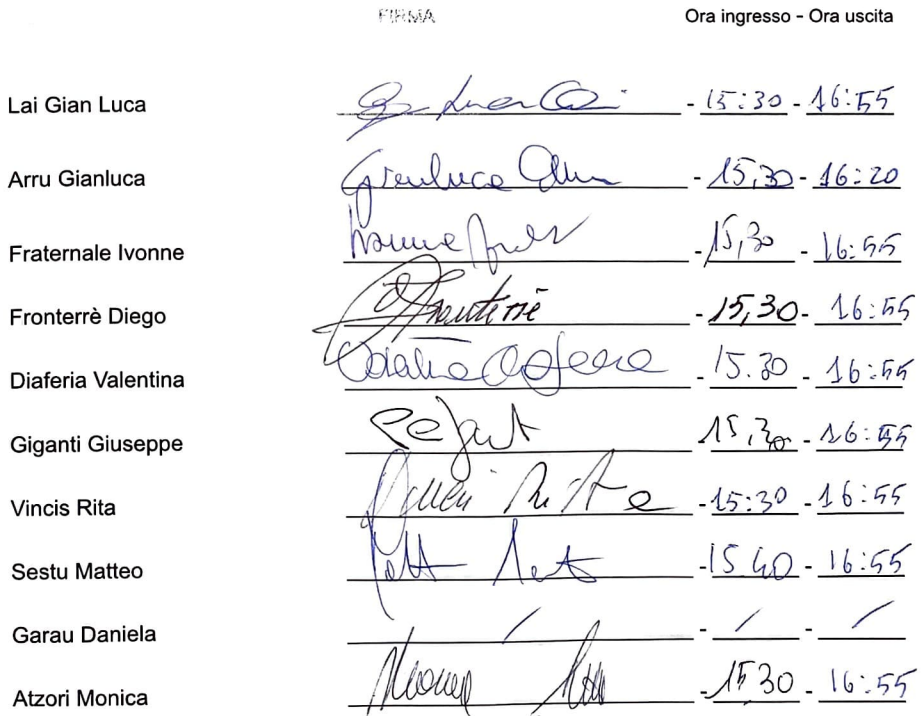 FIRMA Ora ingresso - Ora uscita
Lai Gian Luca - 15:30 - 16:55
Arru Gianluca Gianluca Arru - 15,30 - 16:20
Fraternale Ivonne Ivonne - 15,30 - 16:55
Fronterrè Diego Fronterrè - 15,30 - 16:55
Diaferia Valentina - 15.30 - 16:55
Giganti Giuseppe - 15,30 - 16:55
Vincis Rita - 15:30 - 16:55
Sestu Matteo - 15.40 - 16:55
Garau Daniela / - / - /
Atzori Monica - 15,30 - 16:55